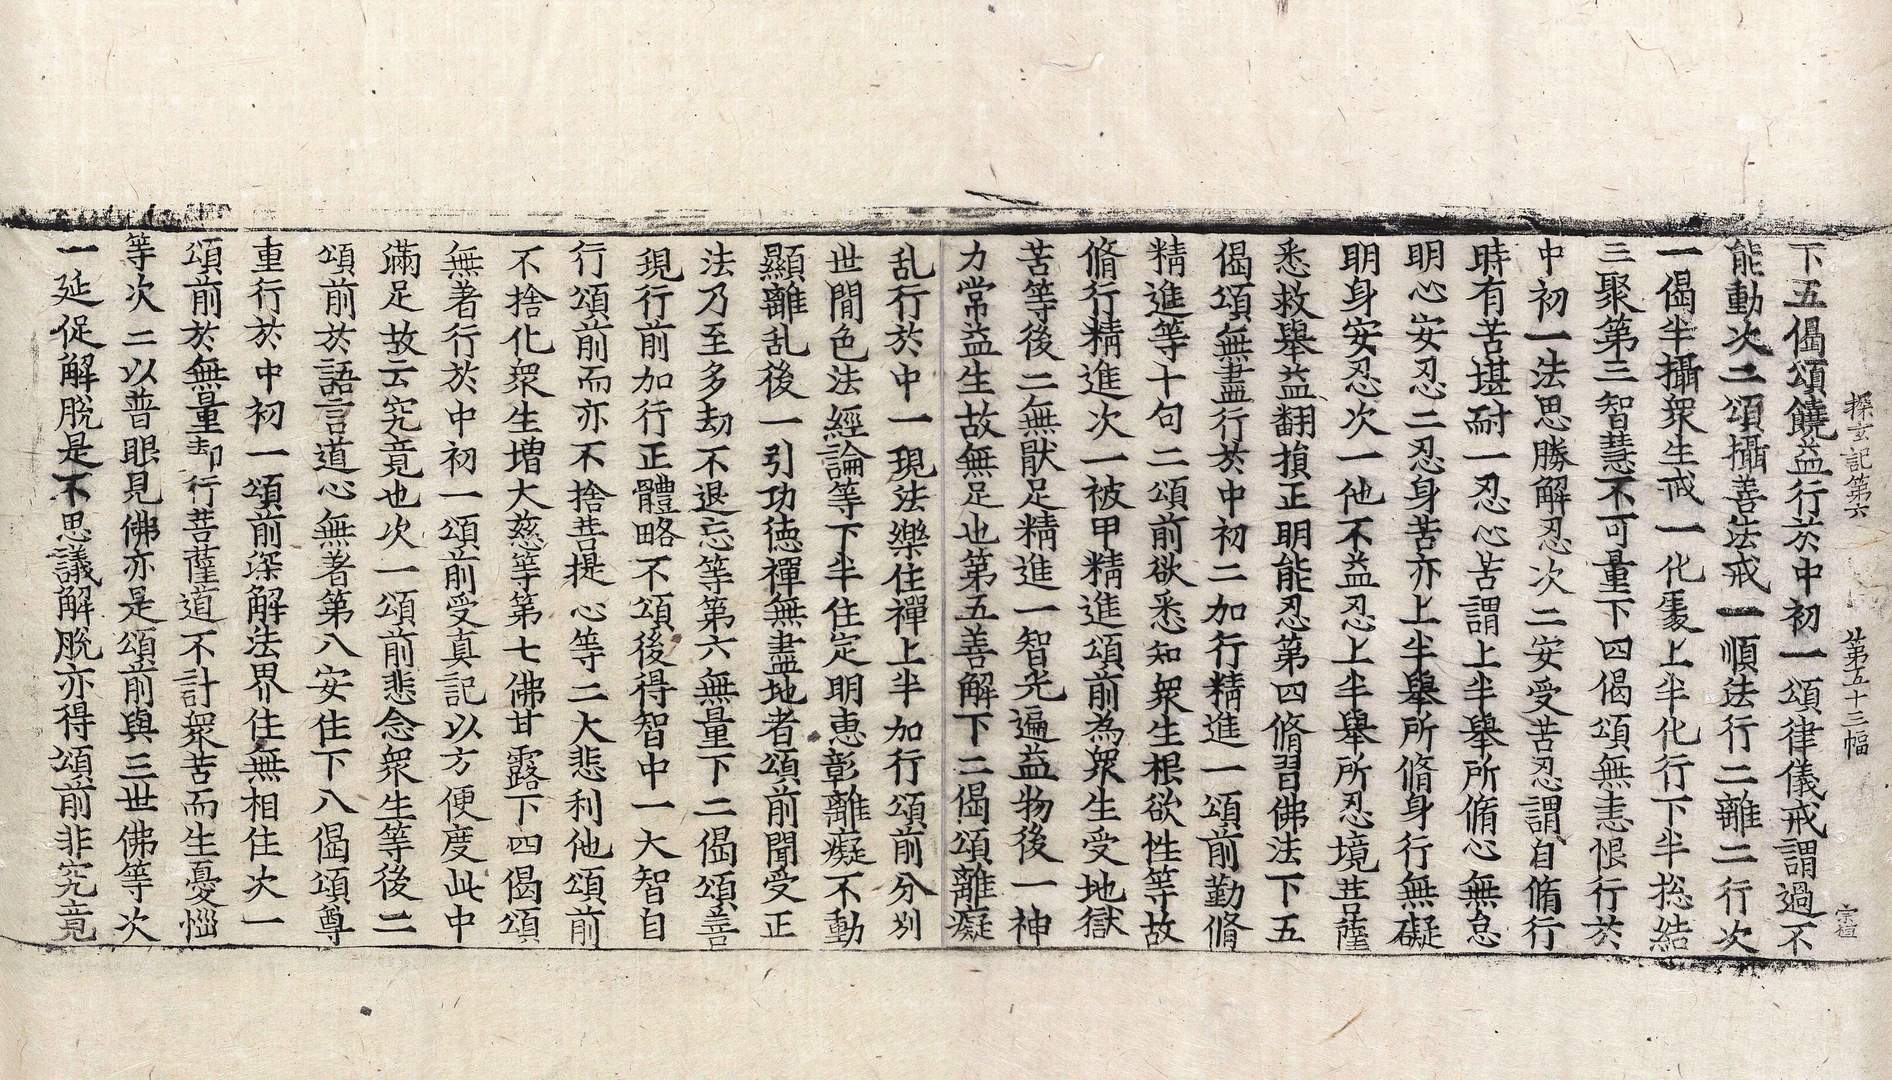 探玄記第六　第五十三幅　宗植
下五偈頌饒益行於中初一頌律儀戒謂過不
能動次二頌攝善法戒一順法行二離二行次
一偈半攝衆生戒一化裏上半化行下半捴結
三聚第三智慧不可量下四偈頌無恚恨行於
中初一法思勝解忍次二安受苦忍謂自脩行
時有苦堪耐一忍心苦謂上半舉所脩心無怠
明心安忍二忍身苦亦上半舉所脩身行無礙
明身安忍次一他不益忍上半舉所忍境菩薩
悉救舉益翻損正明能忍第四脩習佛法下五
偈頌無盡行於中初二加行精進一頌前勤脩
精進等十句二頌前欲悉知衆生根欲性等故
脩行精進次一被甲精進頌前為衆生受地獄
苦等後二無猒足精進一智光遍益物後一神
力常益生故無足也第五善解下二偈頌離癡
乱行於中一現法樂住禪上半加行頌前分别
世間色法經論等下半住定明恵彰離癡不動
顯離乱後一引功徳禪無盡地者頌前聞受正
法乃至多劫不退忘等第六無量下二偈頌善
現行前加行正體略不頌後得智中一大智自
行頌前而亦不捨菩提心等二大悲利他頌前
不捨化衆生增大慈等第七佛甘露下四偈頌
無著行於中初一頌前受真記以方便度此中
滿足故云究竟也次一頌前悲念衆生等後二
頌前於語言道心無著第八安住下八偈頌尊
重行於中初一頌前深解法界住無相住次一
頌前於無量却行菩薩道不計衆苦而生憂惱
等次二以普眼見佛亦是頌前與三世佛等次
一延促解脫是不思議解脫亦得頌前非究竟